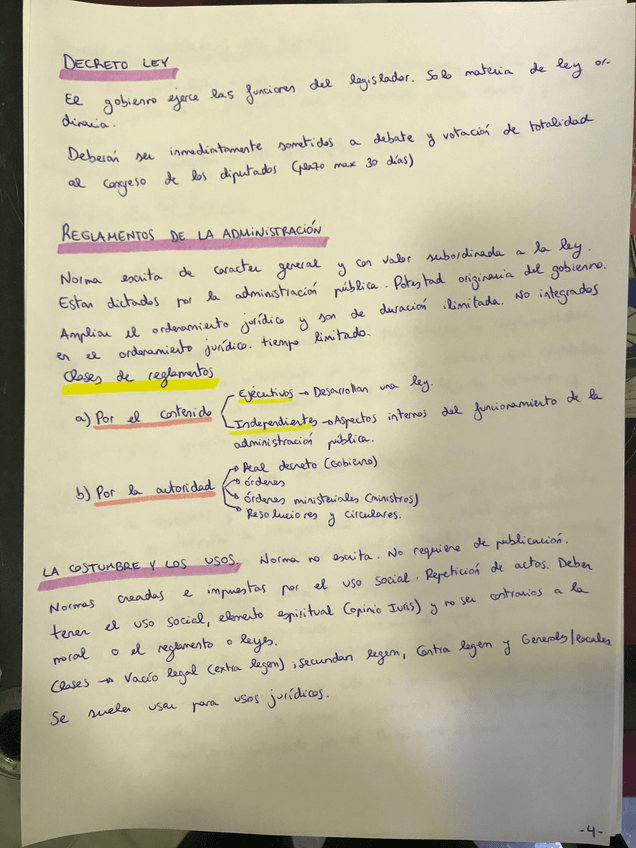 DECRETO LEY
El gobierno ejerce las funciones del legislador. Solo materia de ley or-
dinaria.
Deberán ser inmediatamente sometidos a debate y votación de totalidad
al congreso de los diputados (plazo max 30 días)
REGLAMENTOS DE LA ADMINISTRACIÓN
Norma escrita de caracter general y con valor subordinada a la ley.
Estan dictados por la administración pública. Potestad originaria del gobierno.
Amplian el ordenamiento jurídico y son de duración ilimitada. No integrados
en el ordenamiento jurídico. tiempo limitado.
Clases de reglamentos
a) Por el contenido
Ejecutivos → Desarrollan una ley.
Independientes → Aspectos internos del funcionamiento de la
administración pública.
b) Por la autoridad
Real decreto (Gobierno)
órdenes
órdenes ministeriales (ministros)
Resoluciones y circulares.
LA COSTUMBRE Y LOS USOS. Norma no escrita. No requiere de publicación.
Normas creadas e impuestas por el uso social. Repetición de actos. Deben
tener el uso social, elemento espiritual (opinio Iuris) y no ser contrarios a la
moral o el reglamento o leyes.
Clases → Vacío legal (extra legem), secundan legem, Contra legem y Generales/locales
Se suelen usar para usos jurídicos.
-4-